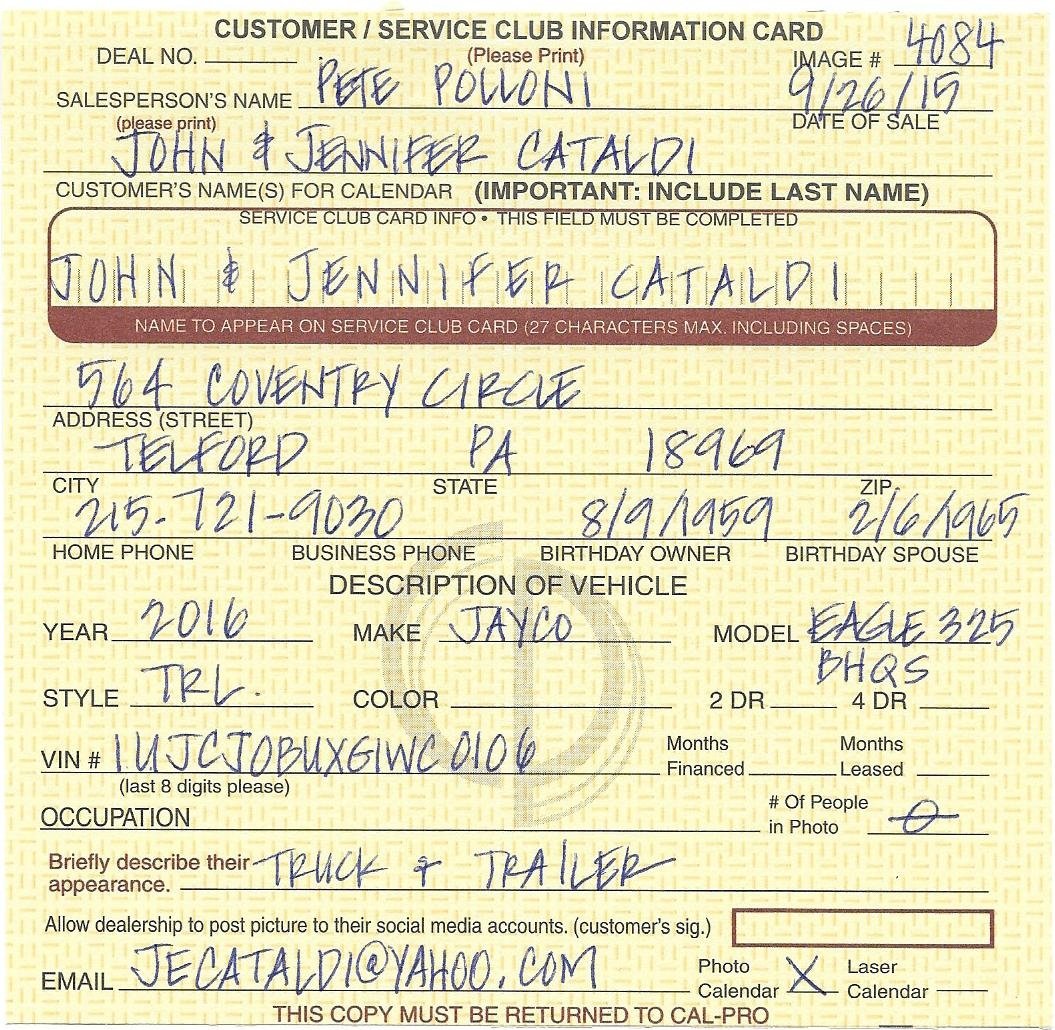 CUSTOMER / SERVICE CLUB INFORMATION CARD
DEAL NO. (Please Print) IMAGE # 4084
SALESPERSON'S NAME PETE POLLONI 9/26/15
(please print) DATE OF SALE
JOHN & JENNIFER CATALDI
CUSTOMER'S NAME(S) FOR CALENDAR (IMPORTANT: INCLUDE LAST NAME)
SERVICE CLUB CARD INFO • THIS FIELD MUST BE COMPLETED
JOHN & JENNIFER CATALDI
NAME TO APPEAR ON SERVICE CLUB CARD (27 CHARACTERS MAX. INCLUDING SPACES)
564 COVENTRY CIRCLE
ADDRESS (STREET)
TELFORD PA 18969
CITY STATE ZIP
215-721-9030 8/9/1959 2/6/1965
HOME PHONE BUSINESS PHONE BIRTHDAY OWNER BIRTHDAY SPOUSE
DESCRIPTION OF VEHICLE
YEAR 2016 MAKE JAYCO MODEL EAGLE 325
BHQS
STYLE TRL. COLOR 2 DR 4 DR
VIN # 1UJCJOBUXG1WC0106 Months Financed Months Leased
(last 8 digits please)
OCCUPATION # Of People in Photo 0
Briefly describe their appearance. TRUCK + TRAILER
Allow dealership to post picture to their social media accounts. (customer's sig.)
EMAIL JECATALDI@YAHOO.COM Photo Calendar X Laser Calendar
THIS COPY MUST BE RETURNED TO CAL-PRO